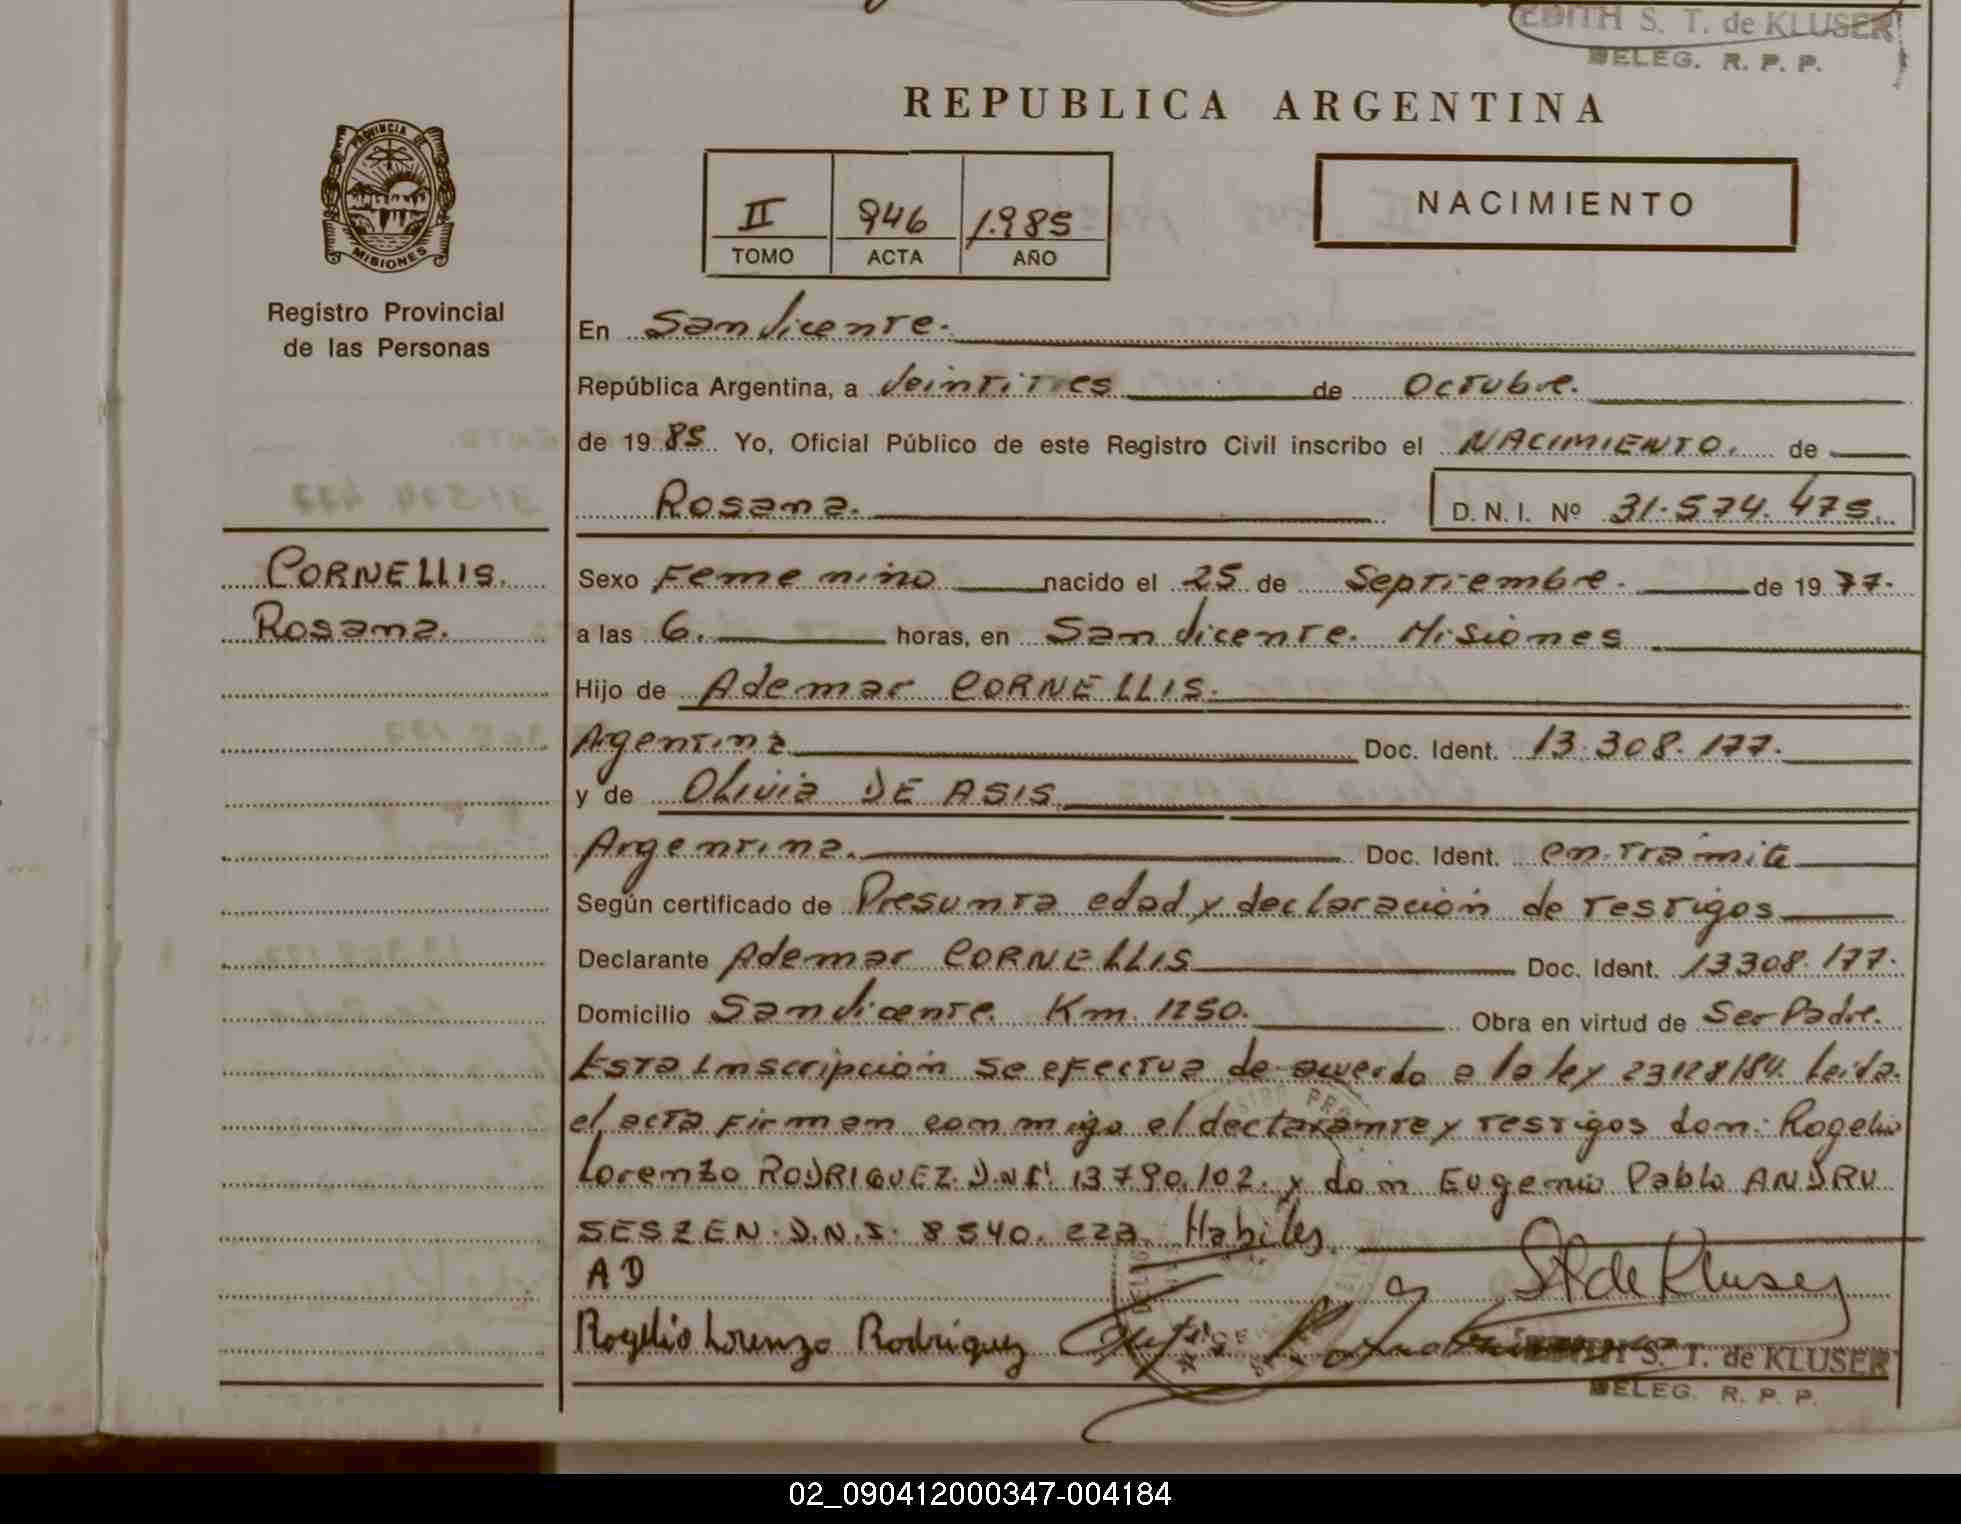 EDITH S. T. de KLUSER
DELEG. R. P. P.
REPUBLICA ARGENTINA
PROVINCIA DE
MISIONES
Registro Provincial
de las Personas
II 946 1.985
TOMO ACTA AÑO
NACIMIENTO
En San Vicente.
República Argentina, a Veintitres de Octubre.
de 19 85 Yo, Oficial Público de este Registro Civil inscribo el NACIMIENTO. de
Rosana. D. N. I. Nº 31.574.475.
CORNELLIS.
Rosana.
Sexo Femenino nacido el 25 de Septiembre. de 19 77.
a las 6. horas, en San Vicente. Misiones
Hijo de Ademar CORNELLIS.
Agentina Doc. Ident. 13.308.177.
y de Olivia DE ASIS.
Argentina. Doc. Ident. en tramite
Según certificado de Presunta edad y declaración de testigos
Declarante Ademar CORNELLIS Doc. Ident. 13308.177.
Domicilio San Vicente. Km. 1250. Obra en virtud de Ser Padre.
Esta inscripción se efectua de acuerdo a la ley 23128/84. Leida.
el acta Firman conmigo el declarante y testigos don: Rogelio
Lorenzo RODRIGUEZ. D.N.I. 13790.102. y don Eugenio Pablo ANDRU
SESZEN. D.N.I. 8540.223. Habiles.
A D
Rogelio Lorenzo Rodriguez
St de Kluser
EDITH S. T. de KLUSER
DELEG. R. P. P.
02_090412000347-004184